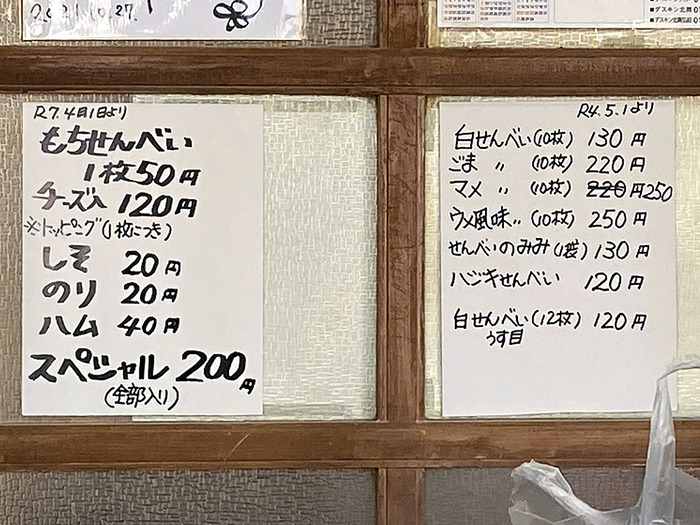 R7.4月1日より
もちせんべい
1枚50円
チーズ入 120円
※トッピング(1枚につき)
しそ 20円
のり 20円
ハム 40円
スペシャル 200円
(全部入り)
R4.5.1より
白せんべい(10枚) 130円
ごま 〃 (10枚) 220円
マメ 〃 (10枚) 220円250
ウメ風味〃(10枚) 250円
せんべいのみみ(1袋) 130円
ハジキせんべい 120円
白せんべい(12枚) 120円
うす目